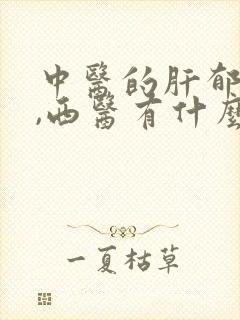 中醫的肝郁
,西醫有什麼
一夏枯草